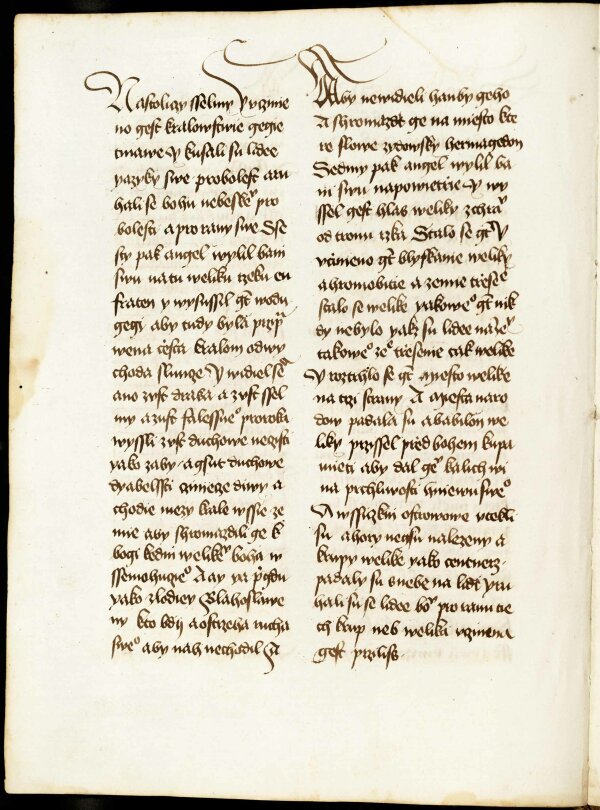 Nastoliczy sselmy Y vczinie
no gest kralowstwie gegie
tmawe Y kusali su lidee
yazyky swe probolest aru
hali se bohu nebeskeº pro
bolesti a pro rany swe Sse
sty pak angel wylil bani
swu na tu weliku rzeku eu
fraten y wysussil gt wodu
gegi aby tudy byla przip
wena czesta kralom odwy
choda slunze Y widiel se
ano zust draka a zust ssel
my a zust falessneº proroka
wyssli trzie duchowe neczisti
yako zaby a gsut duchowe
dyabelssti czinieze diwy a
chodie mezy krale wssie ze
mie aby shromazdili ge k
bogi kedni welikeº boha w
ssemohuczieº A ay ya przigdu
yako zlodiey Blahoslawe
ny kto bdij a ostrzieha rucha
sweº aby nah nechodil A
Aby newidieli hanby geho
A shromazdi ge na miesto kte
re slowe zydowsky hermagedon
Sedmy pak angel wylil ba
ni swu napowietrzie Y wy
ssel gest hlas weliky zchra
od tronu rzka Stalo se gt Y
vczineno gt blyskanie weliky
a hromobitie a zemie trzeseº
stalo se welike yakoweº gt nik
dy nebylo yakz su lidee na zeº
takoweº zeº trzesenie tak welike
Y roztrhlo se gt Miesto welike
na trzi strany A Miesta naro
dow padala su a babilon we
liky przissel przed bohem kupa
mieti aby dal geº kalich wi
na prchliwosti hniewu sweº
A wssiczkni ostrowowe vtekli
su a hory negsu nalezeny a
krupy welike yako centnerz
padaly su s nebe na lidi Y ru
hali su se lidee boº pro ranu tie
ch krup neb welika vczinena
gest prziliss